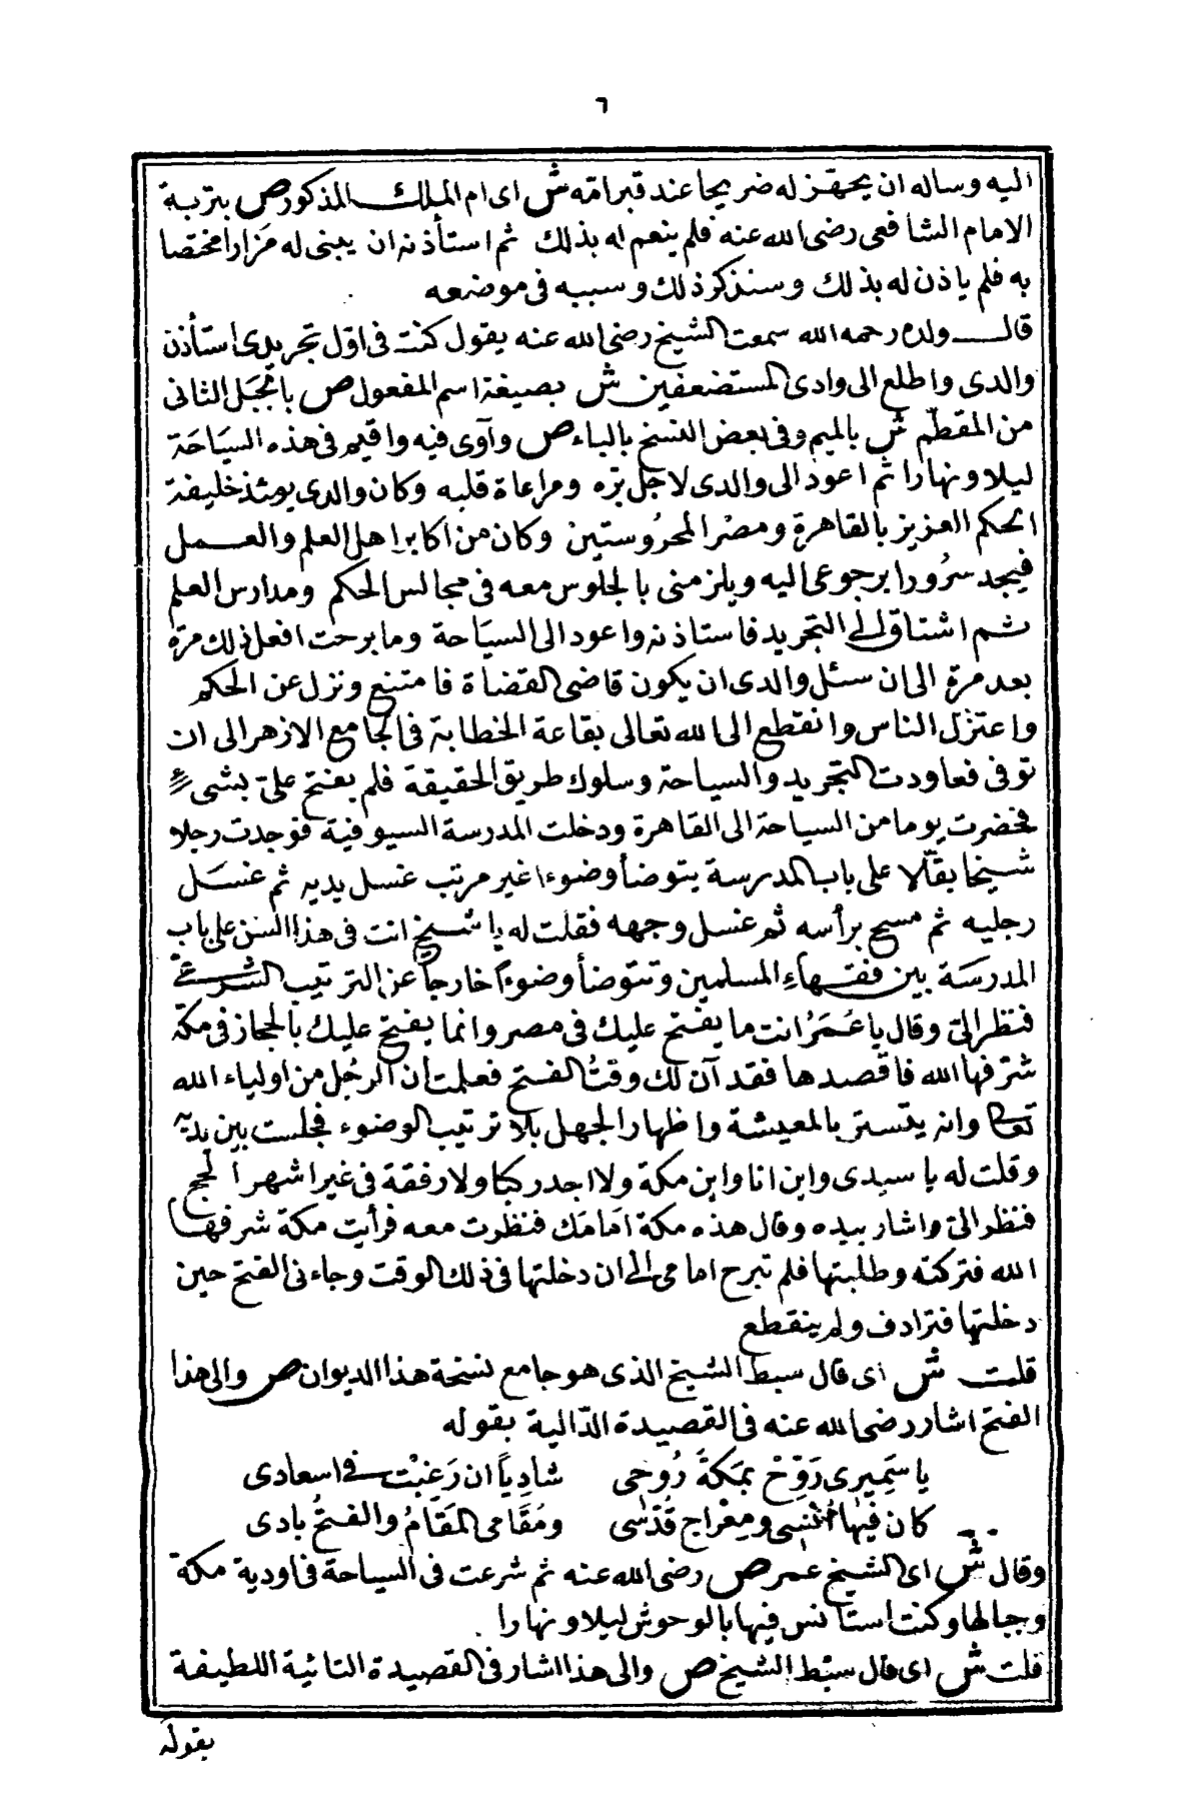 ٦
اليه وساله ان يجهز له ضريحا عند قبر امّه ش اى ام الملك المذكور ص بتربة
الامام الشافعى رضى الله عنه فلم ينعم له بذلك ثم استأذنه ان يبنى له مَزارا مختصا
به فلم ياذن له بذلك وسنذكر ذلك وسببه فى موضعه
قال ولده رحمه الله سمعت الشيخ رضى الله عنه يقول كنت فى اوّل تجريدى استأذن
والدى واطلع الى وادى المستضعفين ش بصيغة اسم المفعول ص بالجبَل الثانى
من المقطّم ش بالميم وفى بعض النسخ بالباء ص وآوى فيه واقيم فى هذه السيَاحَة
ليلا ونهارا ثم اعود الى والدى لاجل برّه ومراعاة قلبه وكان والدى يومئذ خليفة
الحكم العزيز بالقاهرة ومصْر المحرُوستين وكان من اكابر اهل العلم والعمل
فيجد سرُورا برجوعى اليه ويلزمنى بالجلوس معه فى مجالس الحكم ومدارس العلم
ثم اشتاق الى التجريد فاستاذنه واعود الى السيَاحة وما برحت افعل ذلك مرّة
بعد مرة الى ان سئل والدى ان يكون قاضى القضاة فامتنع ونزل عن الحكم
واعتزل الناس وانقطع الى الله تعالى بقاعة الخطابة فى الجامع الازهر الى ان
توفى فعاودت التجريد والسياحة وسلوك طريق الحقيقة فلم يفتح علىّ بشىء
فحضرت يوما من السياحة الى القاهرة ودخلت المدرسة السيوفية فوجدت رجلا
شيخا بقّالا على باب المدرسة يتوضأ وضوءا غير مرتب غسل يديه ثم غسَل
رجليه ثم مسح برأسه ثم غسل وجهه فقلت له يا شيخ انت فى هذا السن على باب
المدرسَة بين فقهاءِ المسلمين وتتوضأ وضوءًا خارجاً عن الترتيب الشرعىّ
فنظر الىّ وقال يا عُمَرُ انت ما يفتح عليك فى مصر وانما يفتح عليك بالحجاز فى مكّة
شرّفها الله فاقصدها فقد آن لك وقتُ الفتح فعلمت ان الرجُل من اولياء الله
تعالى وانه يتستر بالمعيشة واظهار الجهل بلا ترتيب الوضوء فجلست بين يديه
وقلت له يا سيدى واين انا واين مكة ولا اجد ركبا ولا رفقة فى غير اشهر الحج
فنظر الىّ واشار بيده وقال هذه مكة امَامَك فنظرت معه فرأيت مكة شرفها
الله فتركته وطلبتها فلم تبرح امامى الى ان دخلتها فى ذلك الوقت وجاءنى الفتح حين
دخلتها فترادف ولم ينقطع
قلت ش اى قال سبط الشيخ الذى هو جامع نسخة هذا الديوان ص والى هذا
الفتح اشار رضى الله عنه فى القصيدة الدّالية بقوله
يا سَمِيرى رَوِّحْ بمَكةَ رُوحى شادِياً ان رَغِبْت فى اسعادى
كان فيها اُنسى ومِعْراج قُدْسى ومُقَامى المَقَامُ والفتحُ بادى
وقال ش اى الشيخ عمر ص رضى الله عنه ثم شرعت فى السياحة فى اودية مكة
وجبالها وكنت استأنس فيها بالوحوش ليلا ونهارا
قلت ش اى قال سبْط الشيخ ص والى هذا اشار فى القصيدة التائية اللطيفة
بقوله